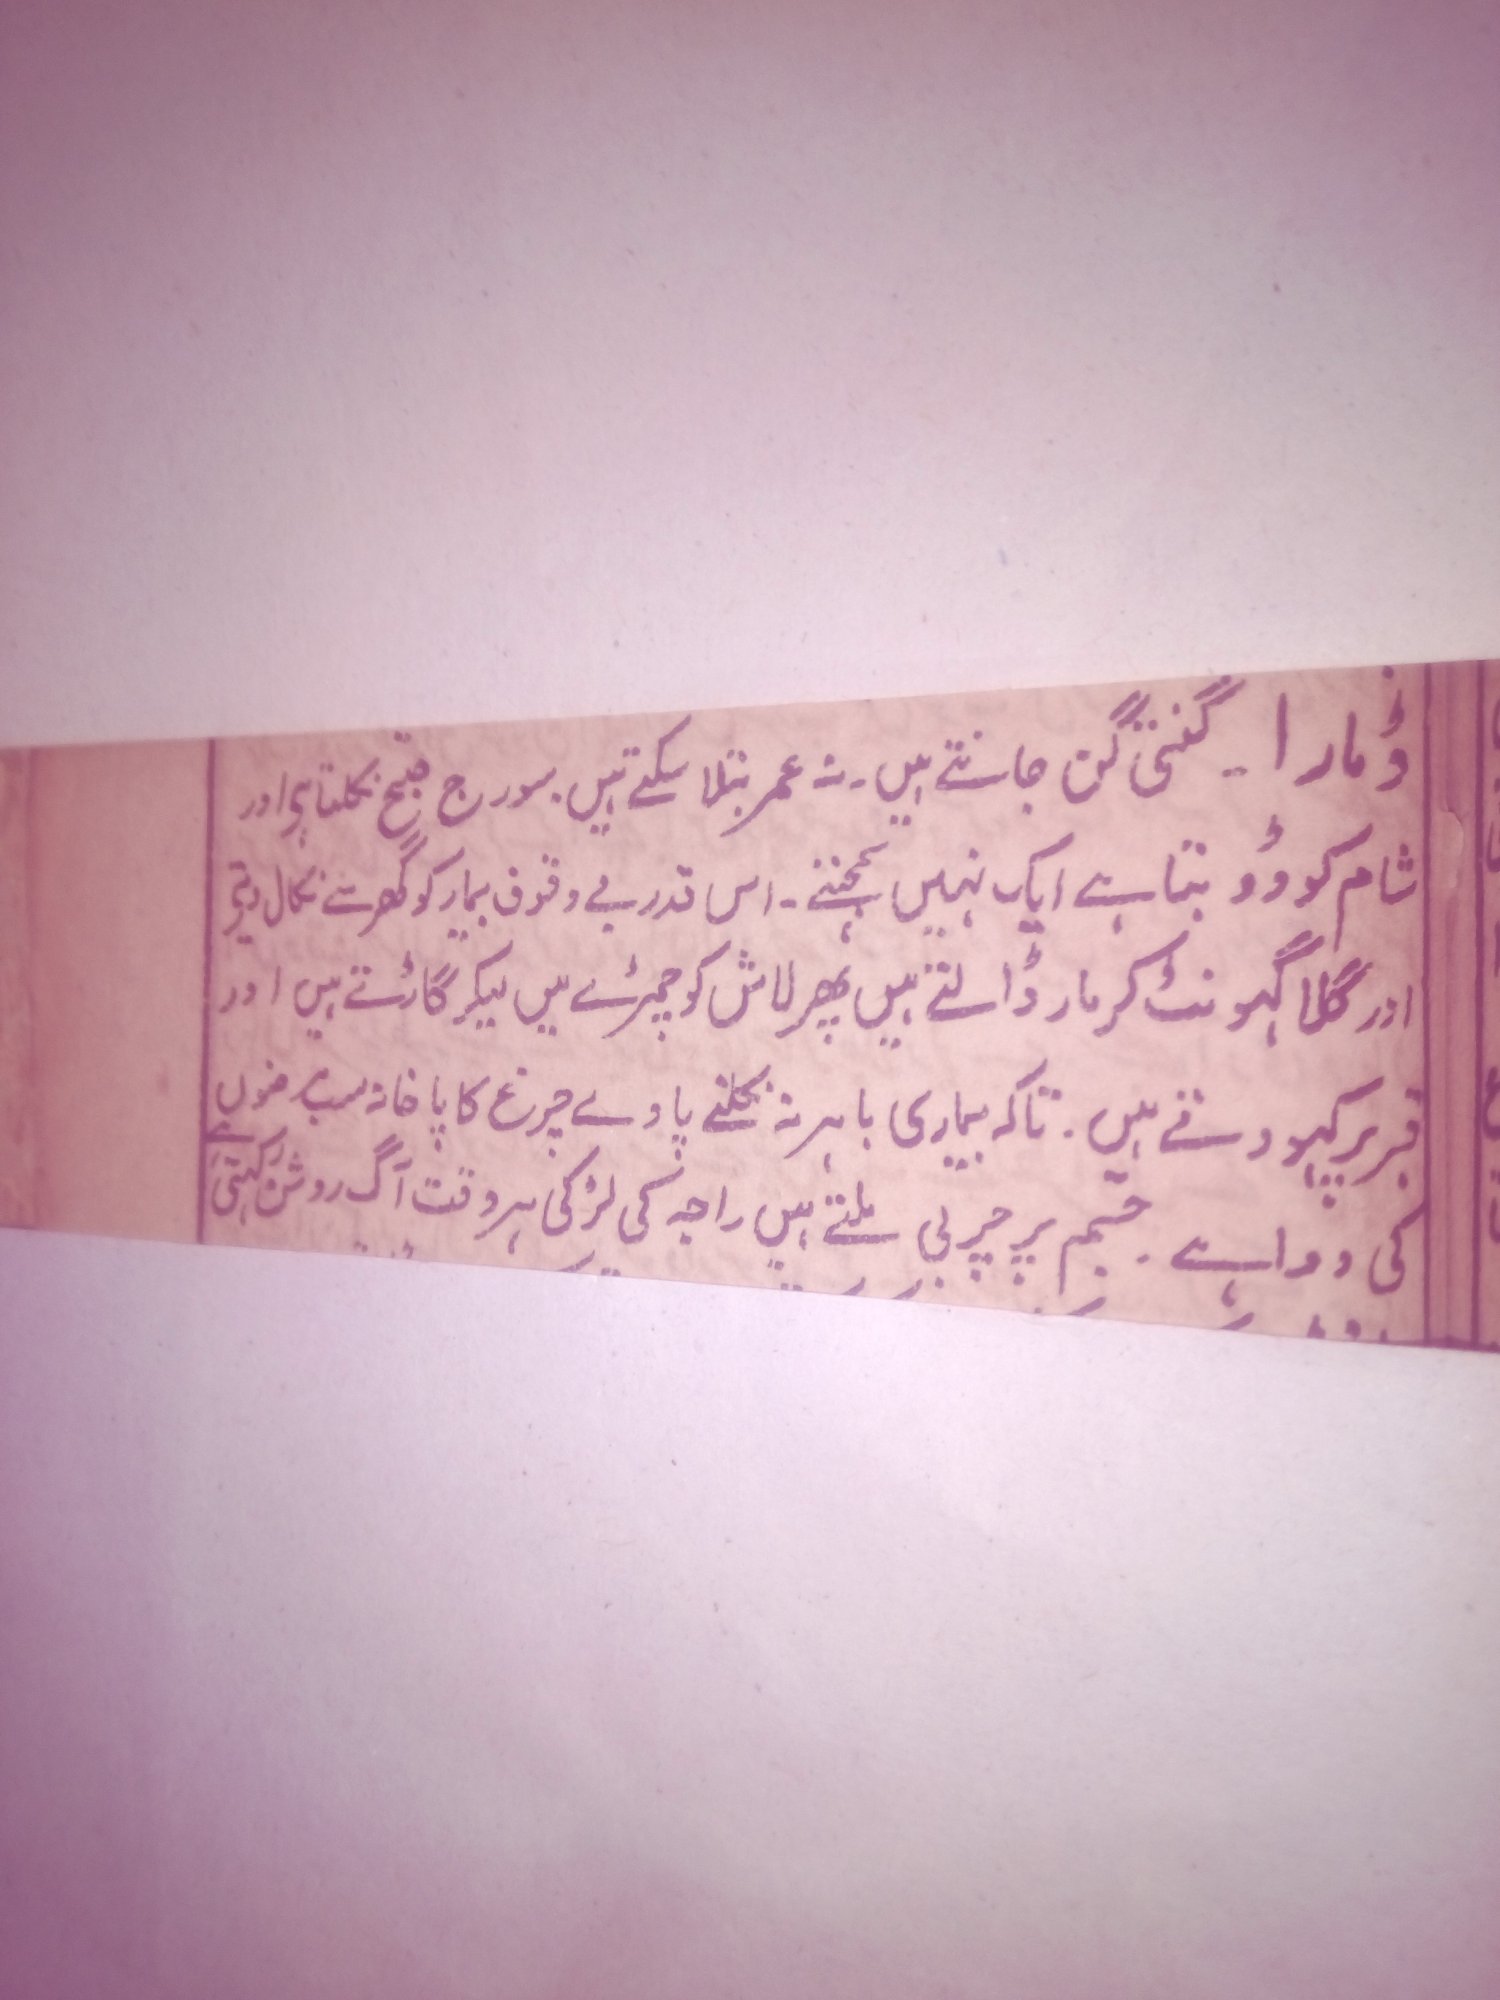 ڈمارا ۔ گنتی گن جانتے ہیں ۔ نہ عمر بتلا سکتے ہیں ۔ سورج صبح نکلتا ہی اور
شام کو ڈوبتا ہے ایک نہیں سمجہتے ۔ اس قدر بے وقوف بیمار کو گھر سے نکال دیتی
اور گلا گہونٹ کر مار ڈالتے ہیں پھر لاش کو چمڑے میں لیکر گاڑتے ہیں اور
قبر پر کہودتے ہیں ۔ تاکہ بیماری باہر نہ نکلنے پاوے چرغ کا پاخانہ سب مرضوں
کی دوا ہے ۔ جسم پر چربی ملتے ہیں راجہ کی لڑکی ہر وقت آگ روشن رکہتی ہے